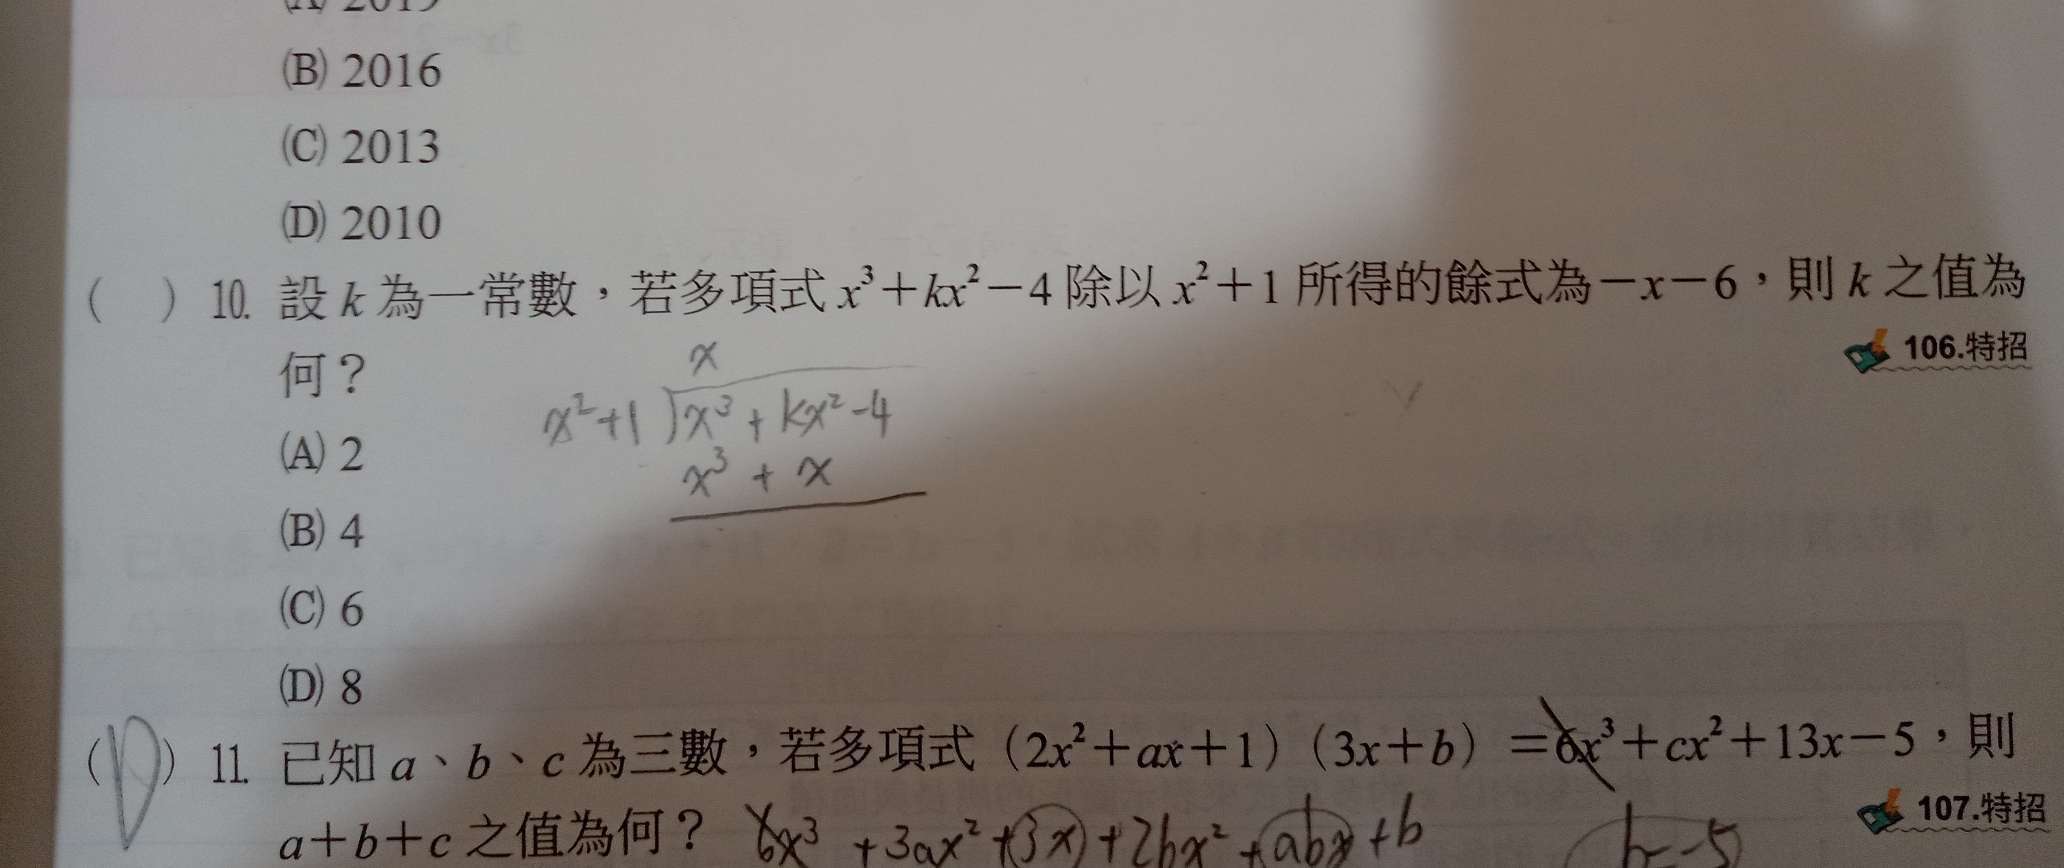 (B) 2016
(C) 2013
(D) 2010
(　) 10. 設 k 為一常數，若多項式 x³＋kx²－4 除以 x²＋1 所得的餘式為－x－6，則 k 之值為
何？
106.特招
x
x²+1 x³+kx²-4
x³+x
(A) 2
(B) 4
(C) 6
(D) 8
(D) 11. 已知 a、b、c 為三數，若多項式（2x²＋ax＋1）（3x＋b）＝6x³＋cx²＋13x－5，則
107.特招
a＋b＋c 之值為何？ 6x³+3ax²+3x+2bx²+abx+b